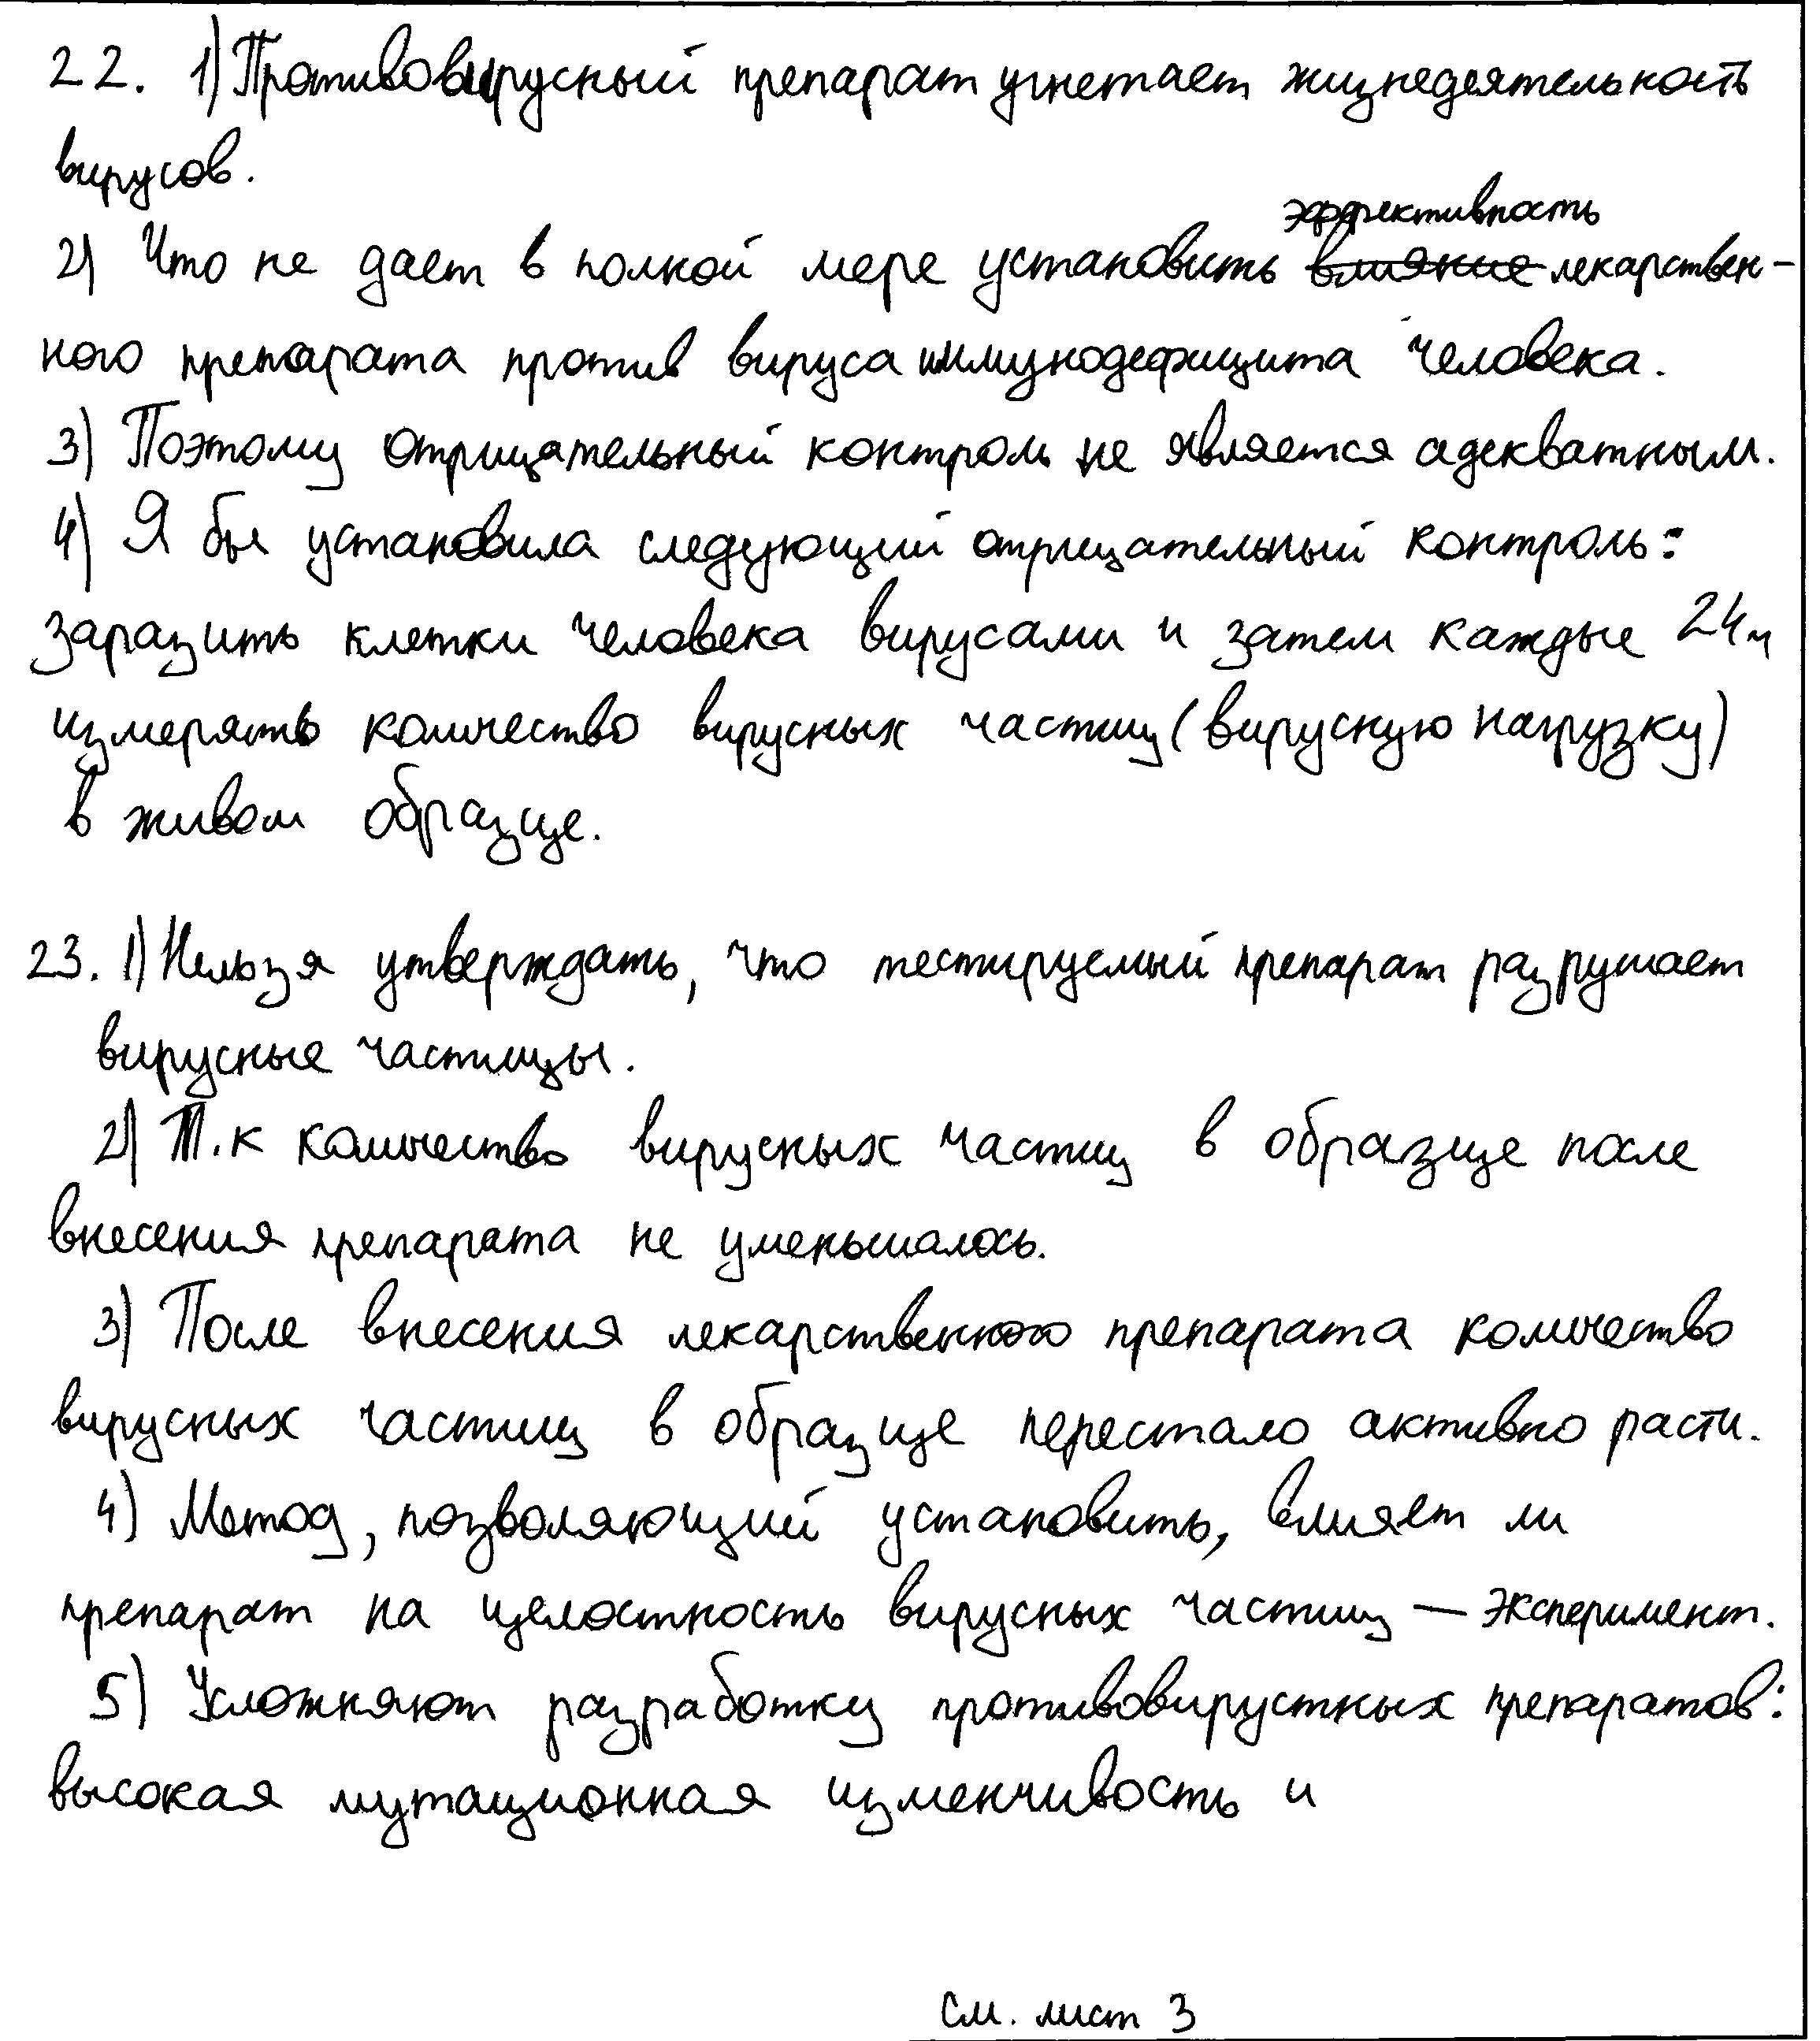 22. 1) Противовирусный препарат угнетает жизнедеятельность
вирусов.
эффективность
2) Что не дает в полной мере установить влияние лекарствен-
ного препарата против вируса иммунодефицита человека.
3) Поэтому отрицательный контроль не является адекватным.
4) Я бы установила следующий отрицательный контроль:
заразить клетки человека вирусами и затем каждые 24ч
измерять количество вирусных частиц (вирусную нагрузку)
в живом образце.
23. 1) Нельзя утверждать, что тестируемый препарат разрушает
вирусные частицы.
2) Т.к количество вирусных частиц в образце после
внесения препарата не уменьшалось.
3) После внесения лекарственного препарата количество
вирусных частиц в образце перестало активно расти.
4) Метод, позволяющий установить, влияет ли
препарат на целостность вирусных частиц — эксперимент.
5) Усложняют разработку противовирустных препаратов:
высокая мутационная изменчивость и
См. лист 3